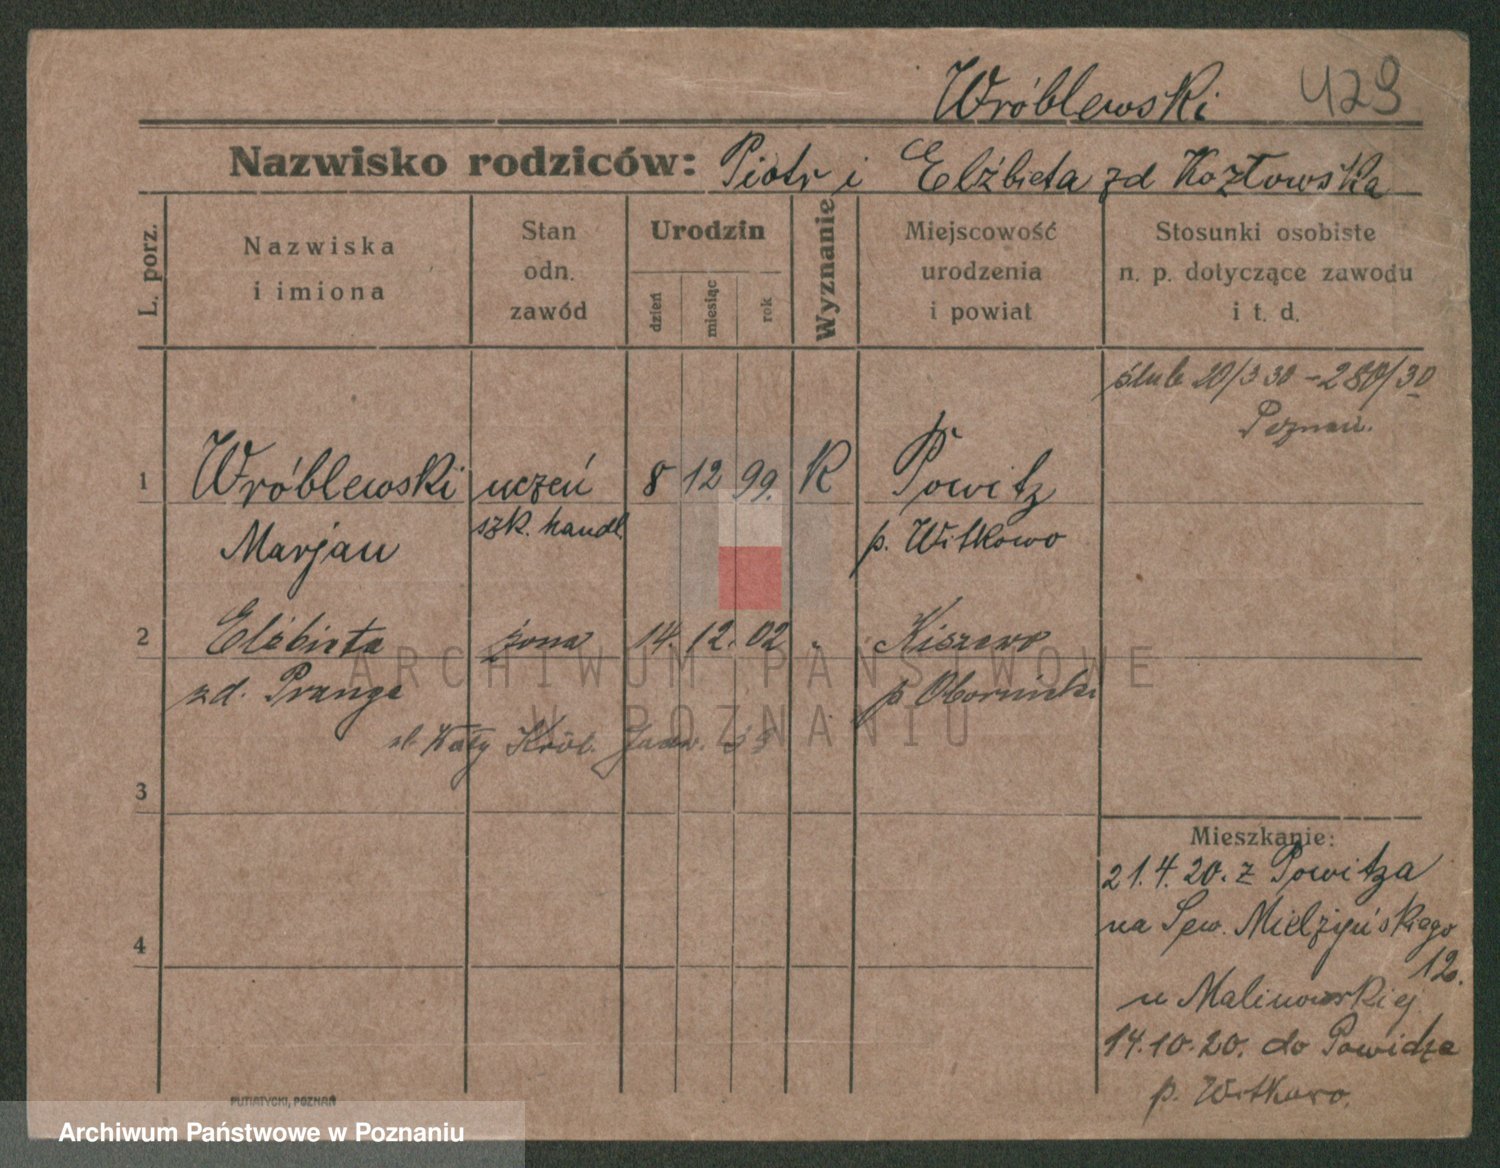 Wróblewski 429
Nazwisko rodziców: Piotr i Elżbieta zd Kozłowska
L. porz.
Nazwiska
i imiona
Stan
odn.
zawód
Urodzin
dzień
miesiąc
rok
Wyznanie
Miejscowość
urodzenia
i powiat
Stosunki osobiste
n. p. dotyczące zawodu
i t. d.
ślub 20/3 30 - 280/30
Poznań.
1 Wróblewski uczeń 8 12 99. K Powitz
Marjan szk. handl. p. Witkowo
2 Elżbieta żona 14. 12. 02 „ Kiszewo
zd. Prange p Oborniki
ul. Wały Król. Jadw.
3
4
Mieszkanie:
21.4.20. z Powitza
na Sew. Mielżyńskiego
12.
u Malinowskiej
14.10.20. do Powidza
p. Witkowo.
PUTIATYCKI, POZNAŃ
ARCHIWUM PAŃSTWOWE
W POZNANIU
Archiwum Państwowe w Poznaniu